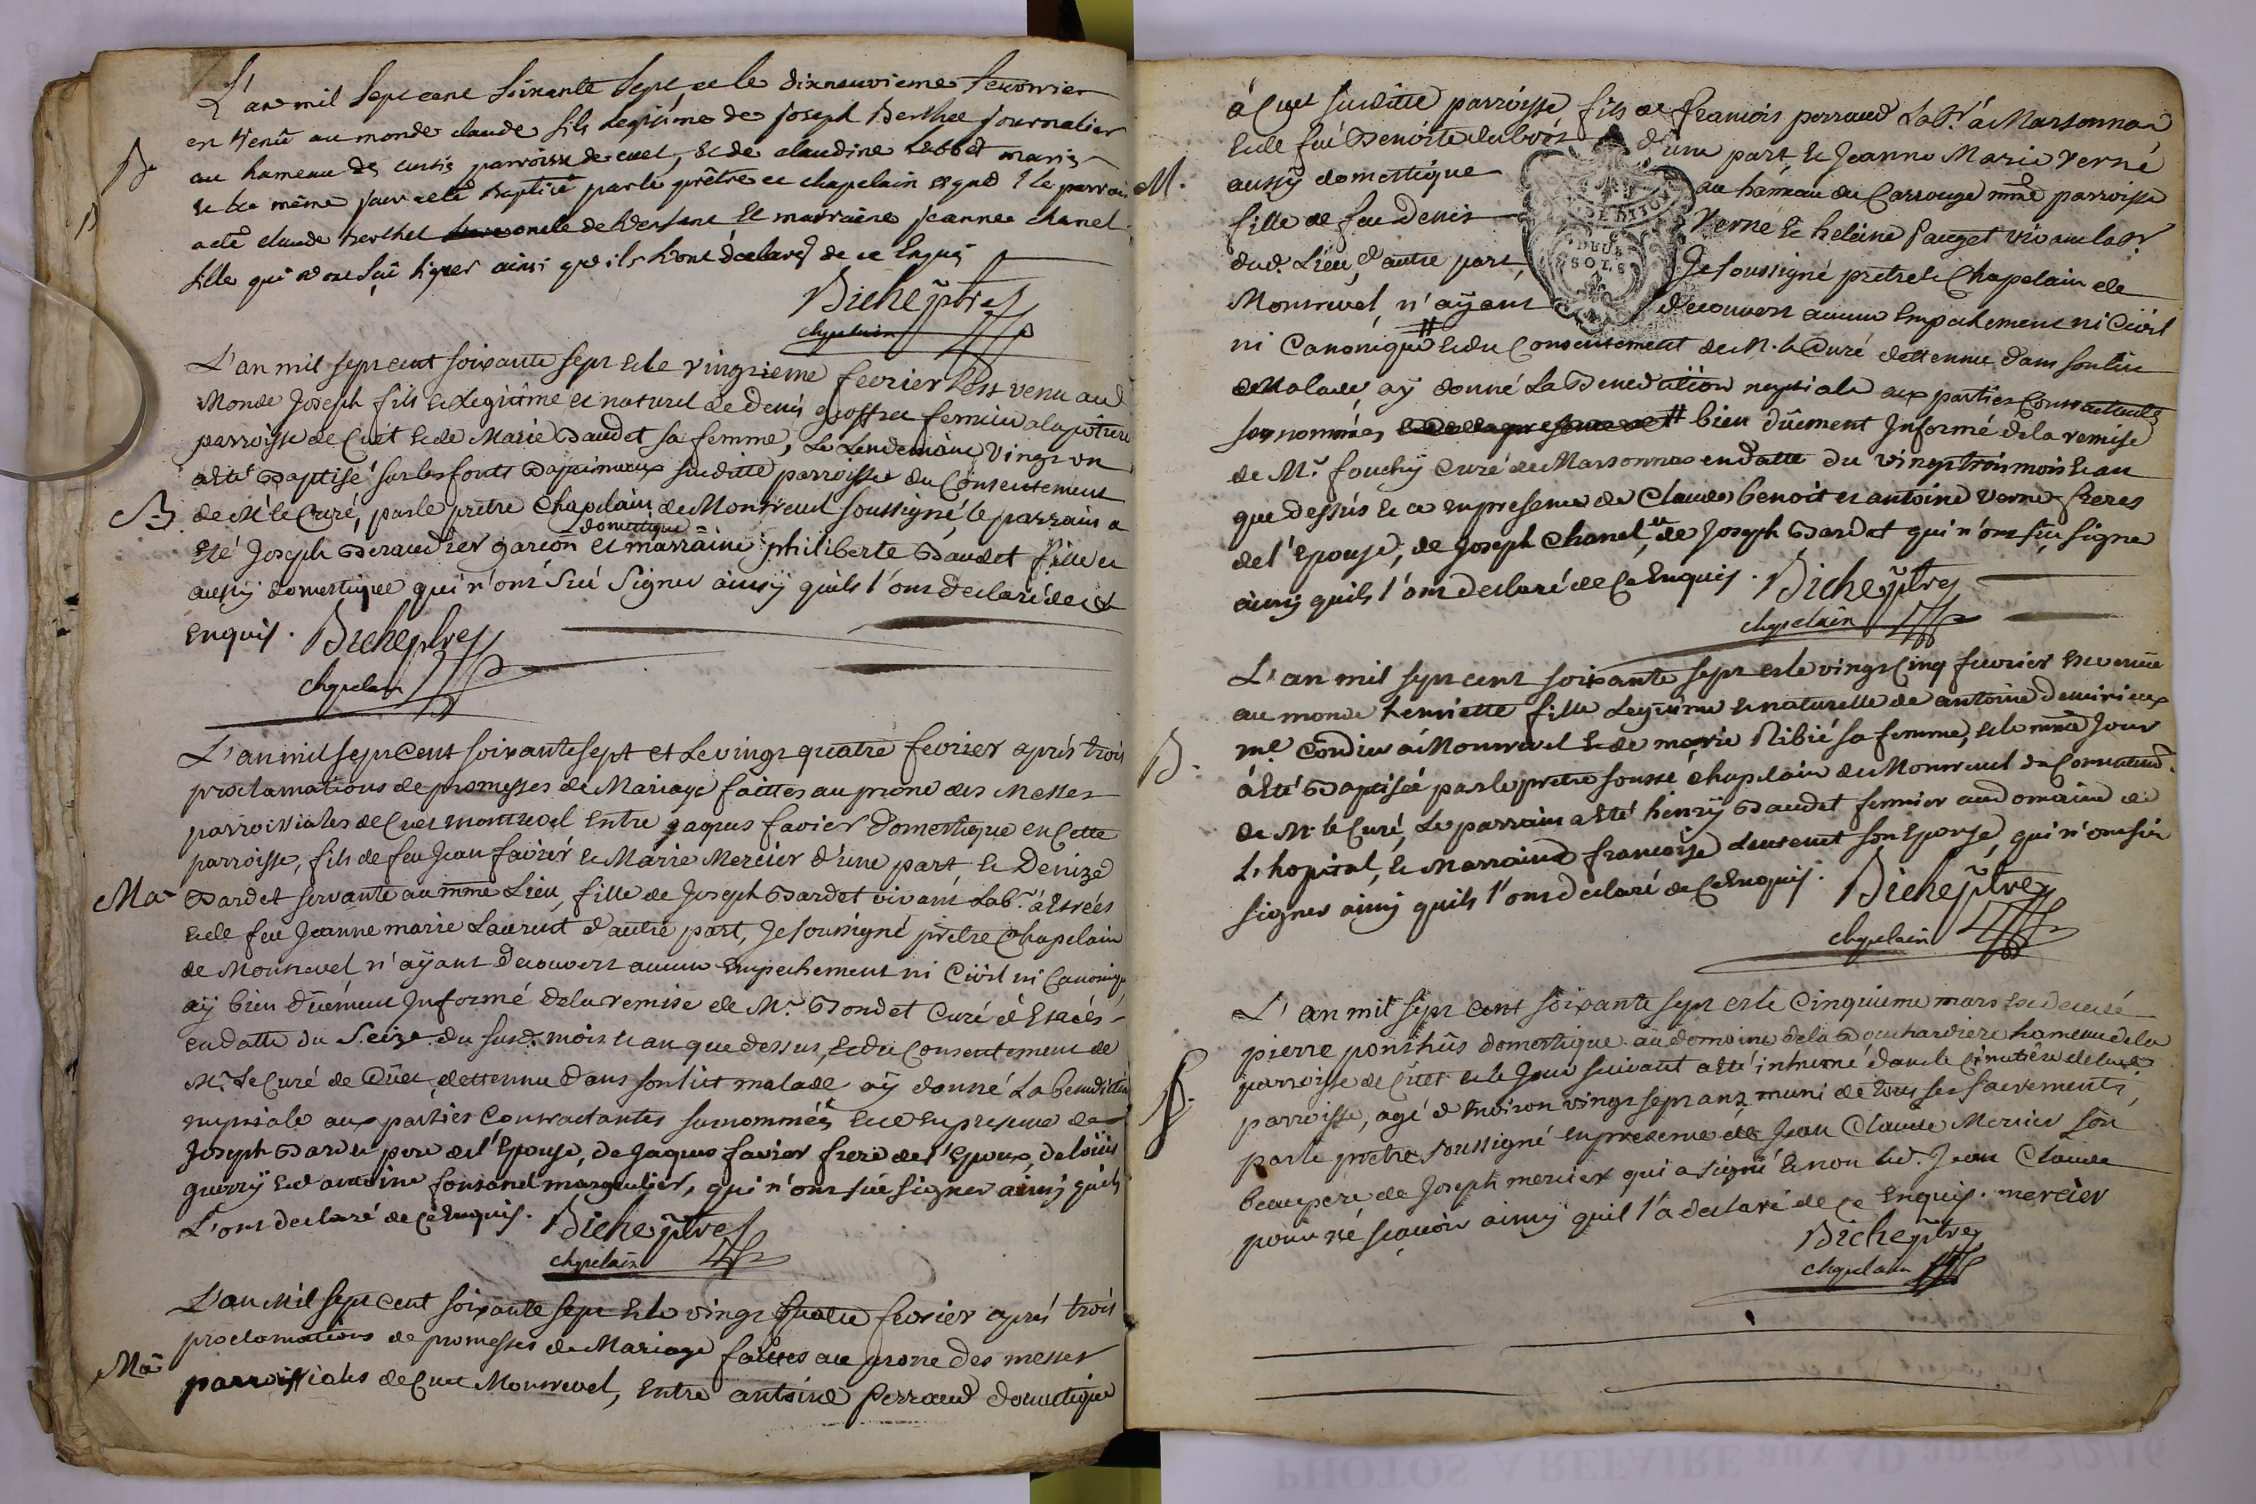 L'an mil sept cent soixante sept et le dixneuvieme fevrier
est venu au monde claude fils legitime de joseph Berthet journalier
au hameau des curtis parroisse de cuet, et de claudine Bebbet mariés
et le même jour a eté baptisé par le prêtre et chapelain le parrain
a eté claude berthet oncle de l'enfant et marraine jeanne chanel
fille qui n'ont sçû signer ainsi qu'ils l'ont declaré de ce enquis
B
Biche ptre
chapelain
L'an mil sept cent soixante sept et le vingtieme fevrier est venu au
Monde Joseph fils legitime et naturel de Denis geoffrei fermier a la
parroisse de Cuet et de Marie Baudet sa femme, le Lendemain vingt un
a eté Baptisé sur les fonts Baptismaux susditte parroisse du Consentement
B
de Mr le Curé, par le prêtre Chapelain de Montrevel soussigné, le parrain a
domestique
eté Joseph Beraudier garcon et marraine philiberte Baudet fille et
aussy domestique qui n'ont scû signer ainsy quils l'ont declaré de ce
enquis. Biche ptre
chapelain
L'an mil sept Cent soixante sept et le vingt quatre fevrier aprés trois
proclamations de promesses de Mariage faittes au prone des Messes
parroissiales de Cuet montrevel entre jaques favier domestique en Cette
parroisse, fils de feu Jean favier et Marie Mercier d'une part, et Denize
Ma
Bardet servante au mme Lieu, fille de Joseph Bardet vivant Labr. à Etrées
et de feu Jeanne marie Laurent d'autre part, Je soussigné prêtre Chapelain
de Montrevel n'aÿant decouvert aucun empechement ni Civil ni Canonique
aÿ bien dûement Informé de la remise de Mr. Bondet Curé d'Etrées
en datte du Seize du susd. mois et an que dessus, et du Consentement de
Mr. Le Curé de Cuet, dettennu dans son lict malade aÿ donné La benediction
nuptiale aux parties Contractantes susnommées et ce en presence de
Joseph Bardet pere de l'Epouse, de Jaques favier frere de l'Epoux, de loüis
guerrÿ et d'antoine fontanel marguilier, qui n'ont sçû signer ainsy quils
L'ont declaré de Ce enquis. Biche ptre
chapelain
L'an Mil sept Cent soixante sept et le vingt quatre fevrier aprés trois
proclamations de promesses de Mariage faittes au prone des messes
Ma
parroissiales de Cuet Montrevel, entre antoine perraud domestique
à Cuet susditte parroisse fils de francois perraud Labr. à Marsonnas
et de feü Benoite dubois d'une part, et Jeanne Marie Verne
M.
aussy domestique au hameau du Carrouge mme parroisse
fille de feu Denis Verne et heleine pauget vivant labr
dud. Lieu d'autre part, Je soussigné pretre et Chapelain de
Montrevel, n'aÿant decouvert aucun Empechement ni Civil
DE DIJON
DEUX
SOLS
ni Canonique et du Consentement de Mr. le Curé dettennu dans son lit
malade, aÿ donné La Benediction nuptiale aux parties Contractantes
susnommées # bien dûement Informé de la remise
de Mr. fouchÿ Curé de Marsonnas en datte du vingt trois mois et an
que dessus et ce en presence de Claude benoit et antoine verne freres
de l'Epouse, de Joseph Chanel, et de Joseph Bardet qui n'ont scû signe
ainsy quils l'ont declaré de Ce Enquis. Biche ptre
chapelain
L'an mil sept cent soixante sept et le vingt Cinq fevrier est venuë
au monde henriette fille Legitime et naturelle de antoine
me. Cordier à Montrevel et de marie Ribié sa femme, et le mme Jour
B.
à eté Baptisée par le pretre soussé chapelain de Montrevel du Consentemt.
de Mr le Curé, Le parrain a eté henrÿ Baudet fermier au domaine de
L'hopital, et Marraine francoise son epouse, qui n'ont sçû
signer ainsy quils l'ont declaré de Ce Enquis. Biche ptre
chapelain
L'an mil sept cent soixante sept et le Cinquieme mars est decedé
pierre ponthus domestique au domaine de la Bouchardiere hameau de la
parroisse de Cuet et le Jour suivant a eté inhumé dans le Cimetiere de lad.
f.
parroisse, agé d'environ vingt sept ans muni de tous ses sacrements,
par le pretre soussigné en presence de Jean Claude Mercier son
beaupere de Joseph mercier qui a signé et non led. Jean Claude
pour ne scavoir ainsy quil l'a declaré de Ce Enquis. mercier
Biche ptre
chapelain